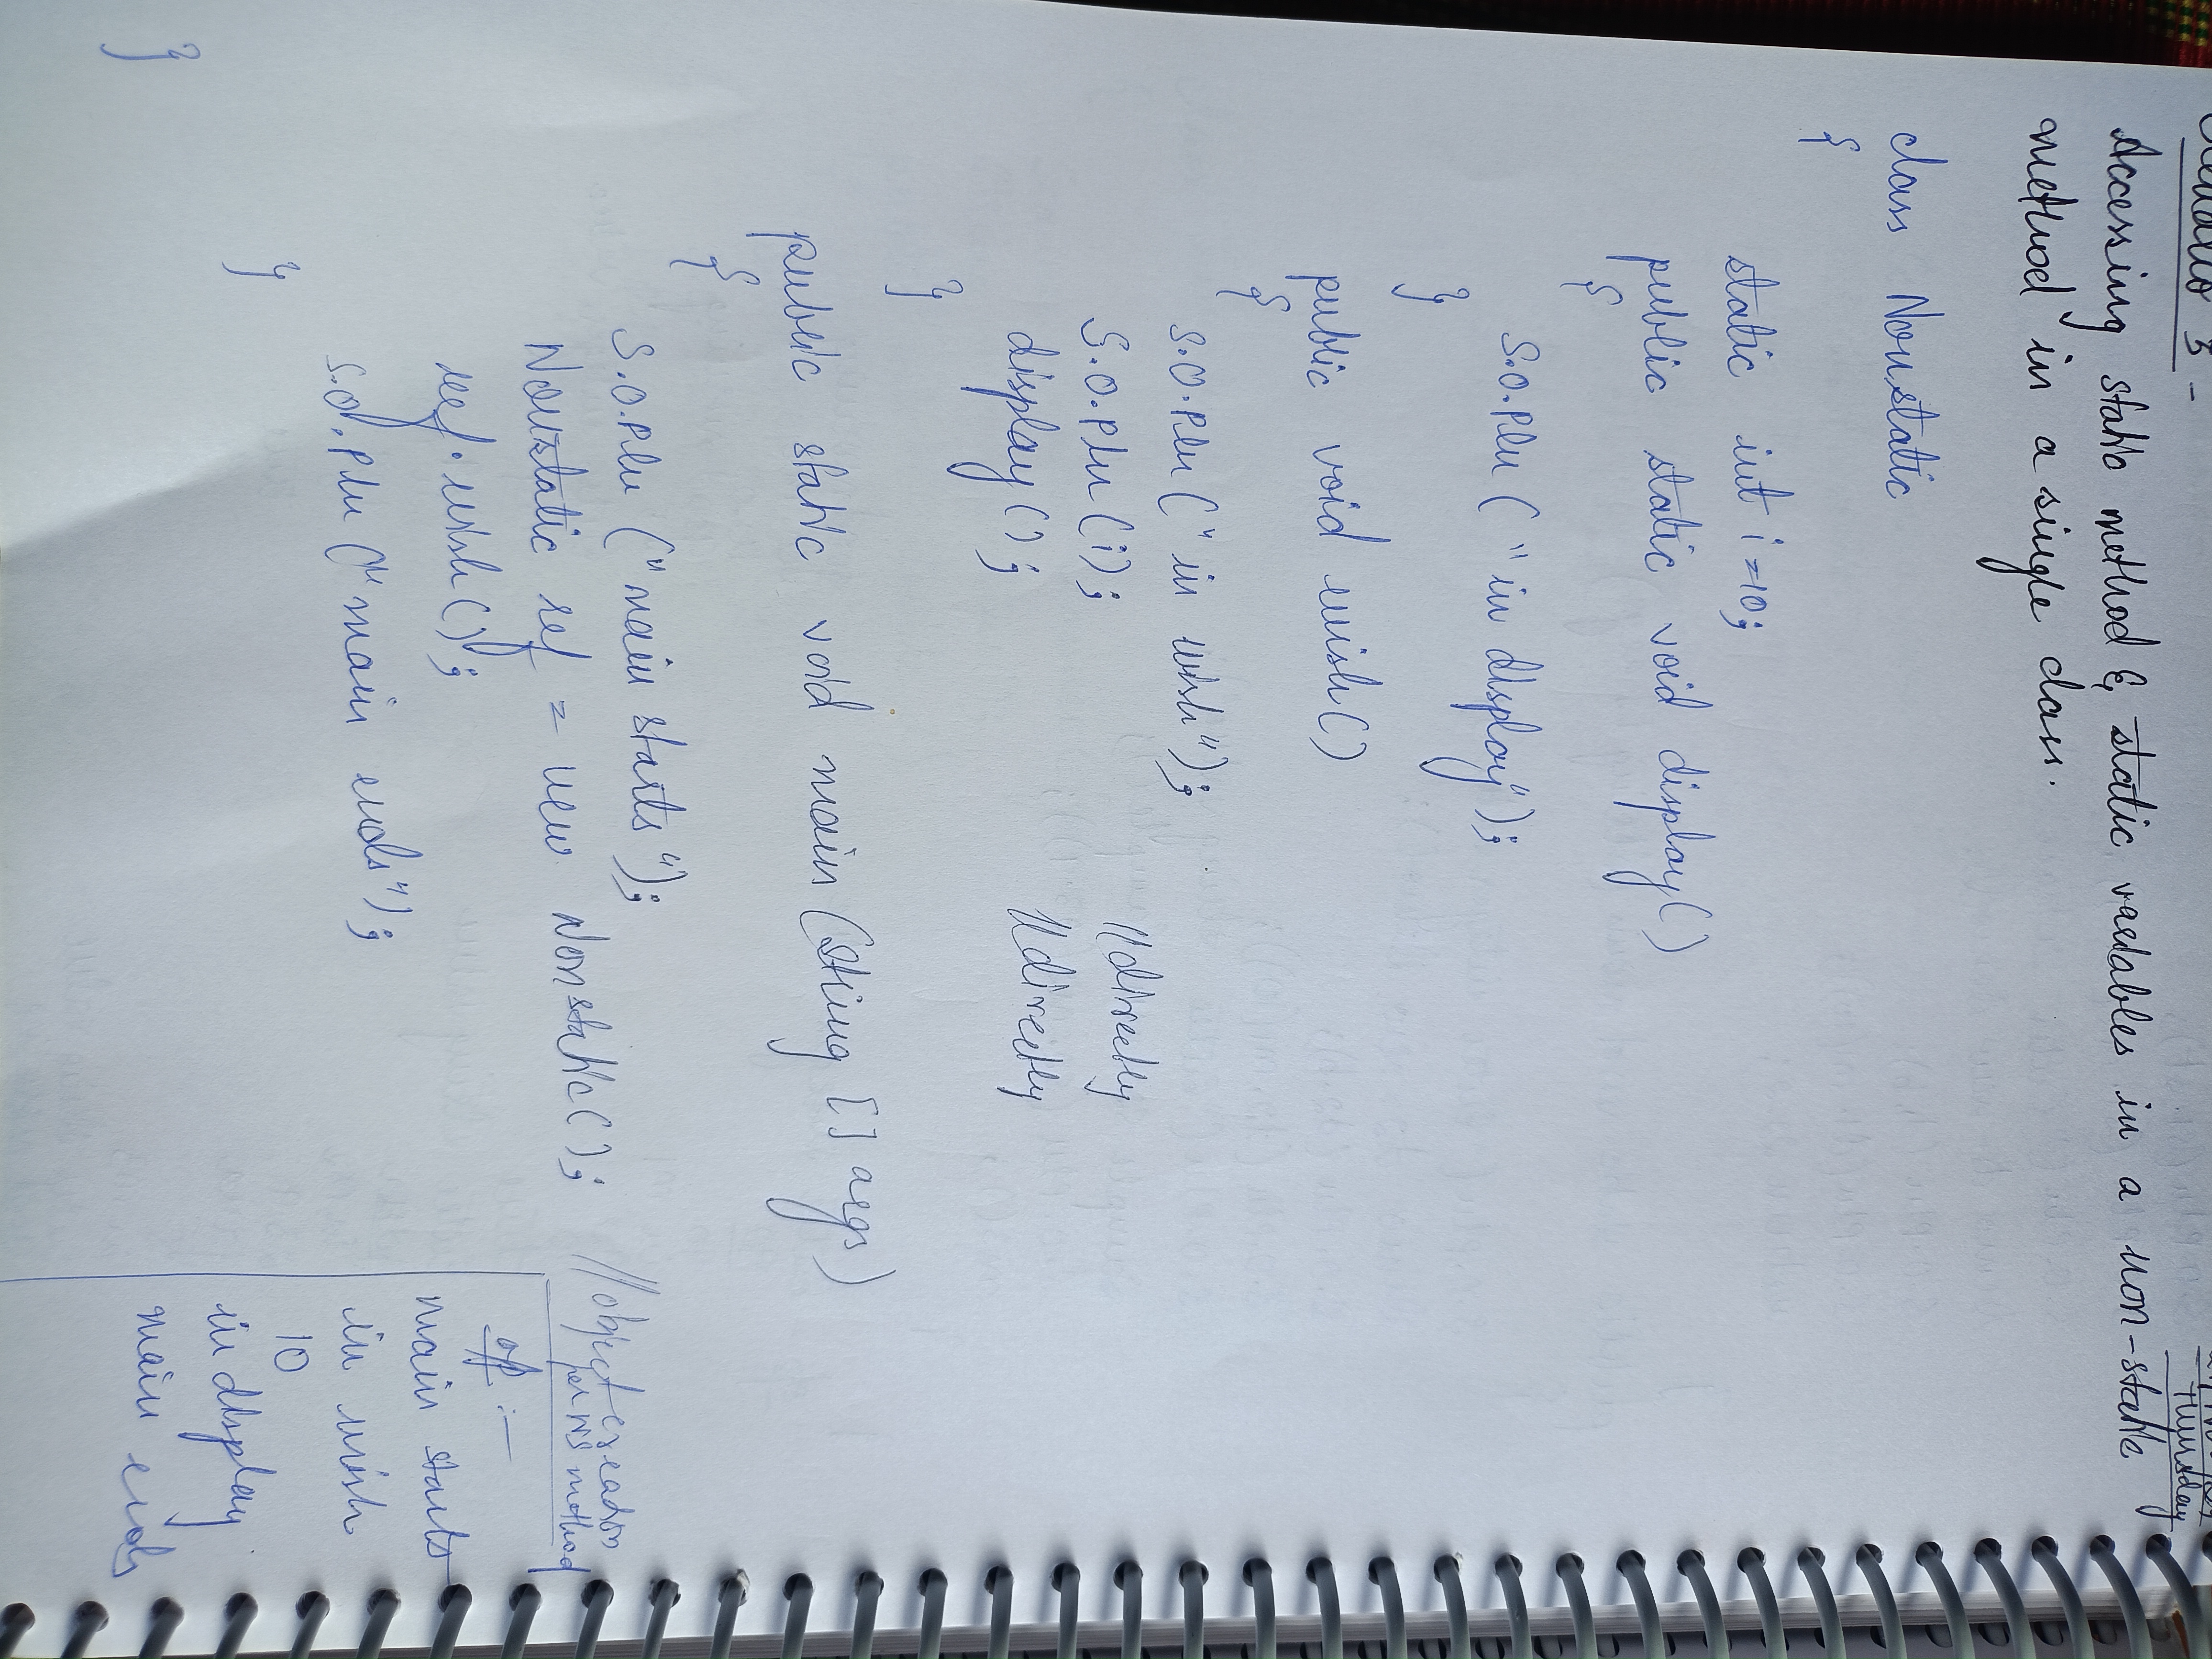 Accessing static method & static variables in a non-static
method in a single class.
class Nonstatic
{
static int i=10;
public static void display()
{
S.O.Pln ("in display");
}
public void wish()
{
S.O.Pln ("in wish");
S.O.Pln (i); //directly
display (); //directly
}
public static void main (String [] args)
{
S.O.Pln ("main starts");
Nonstatic ref = new Nonstatic(); //object creation
for NS method
ref.wish();
S.O.Pln ("main ends");
}
}
o/p :-
main starts
in wish
10
in display
main ends
Thursday